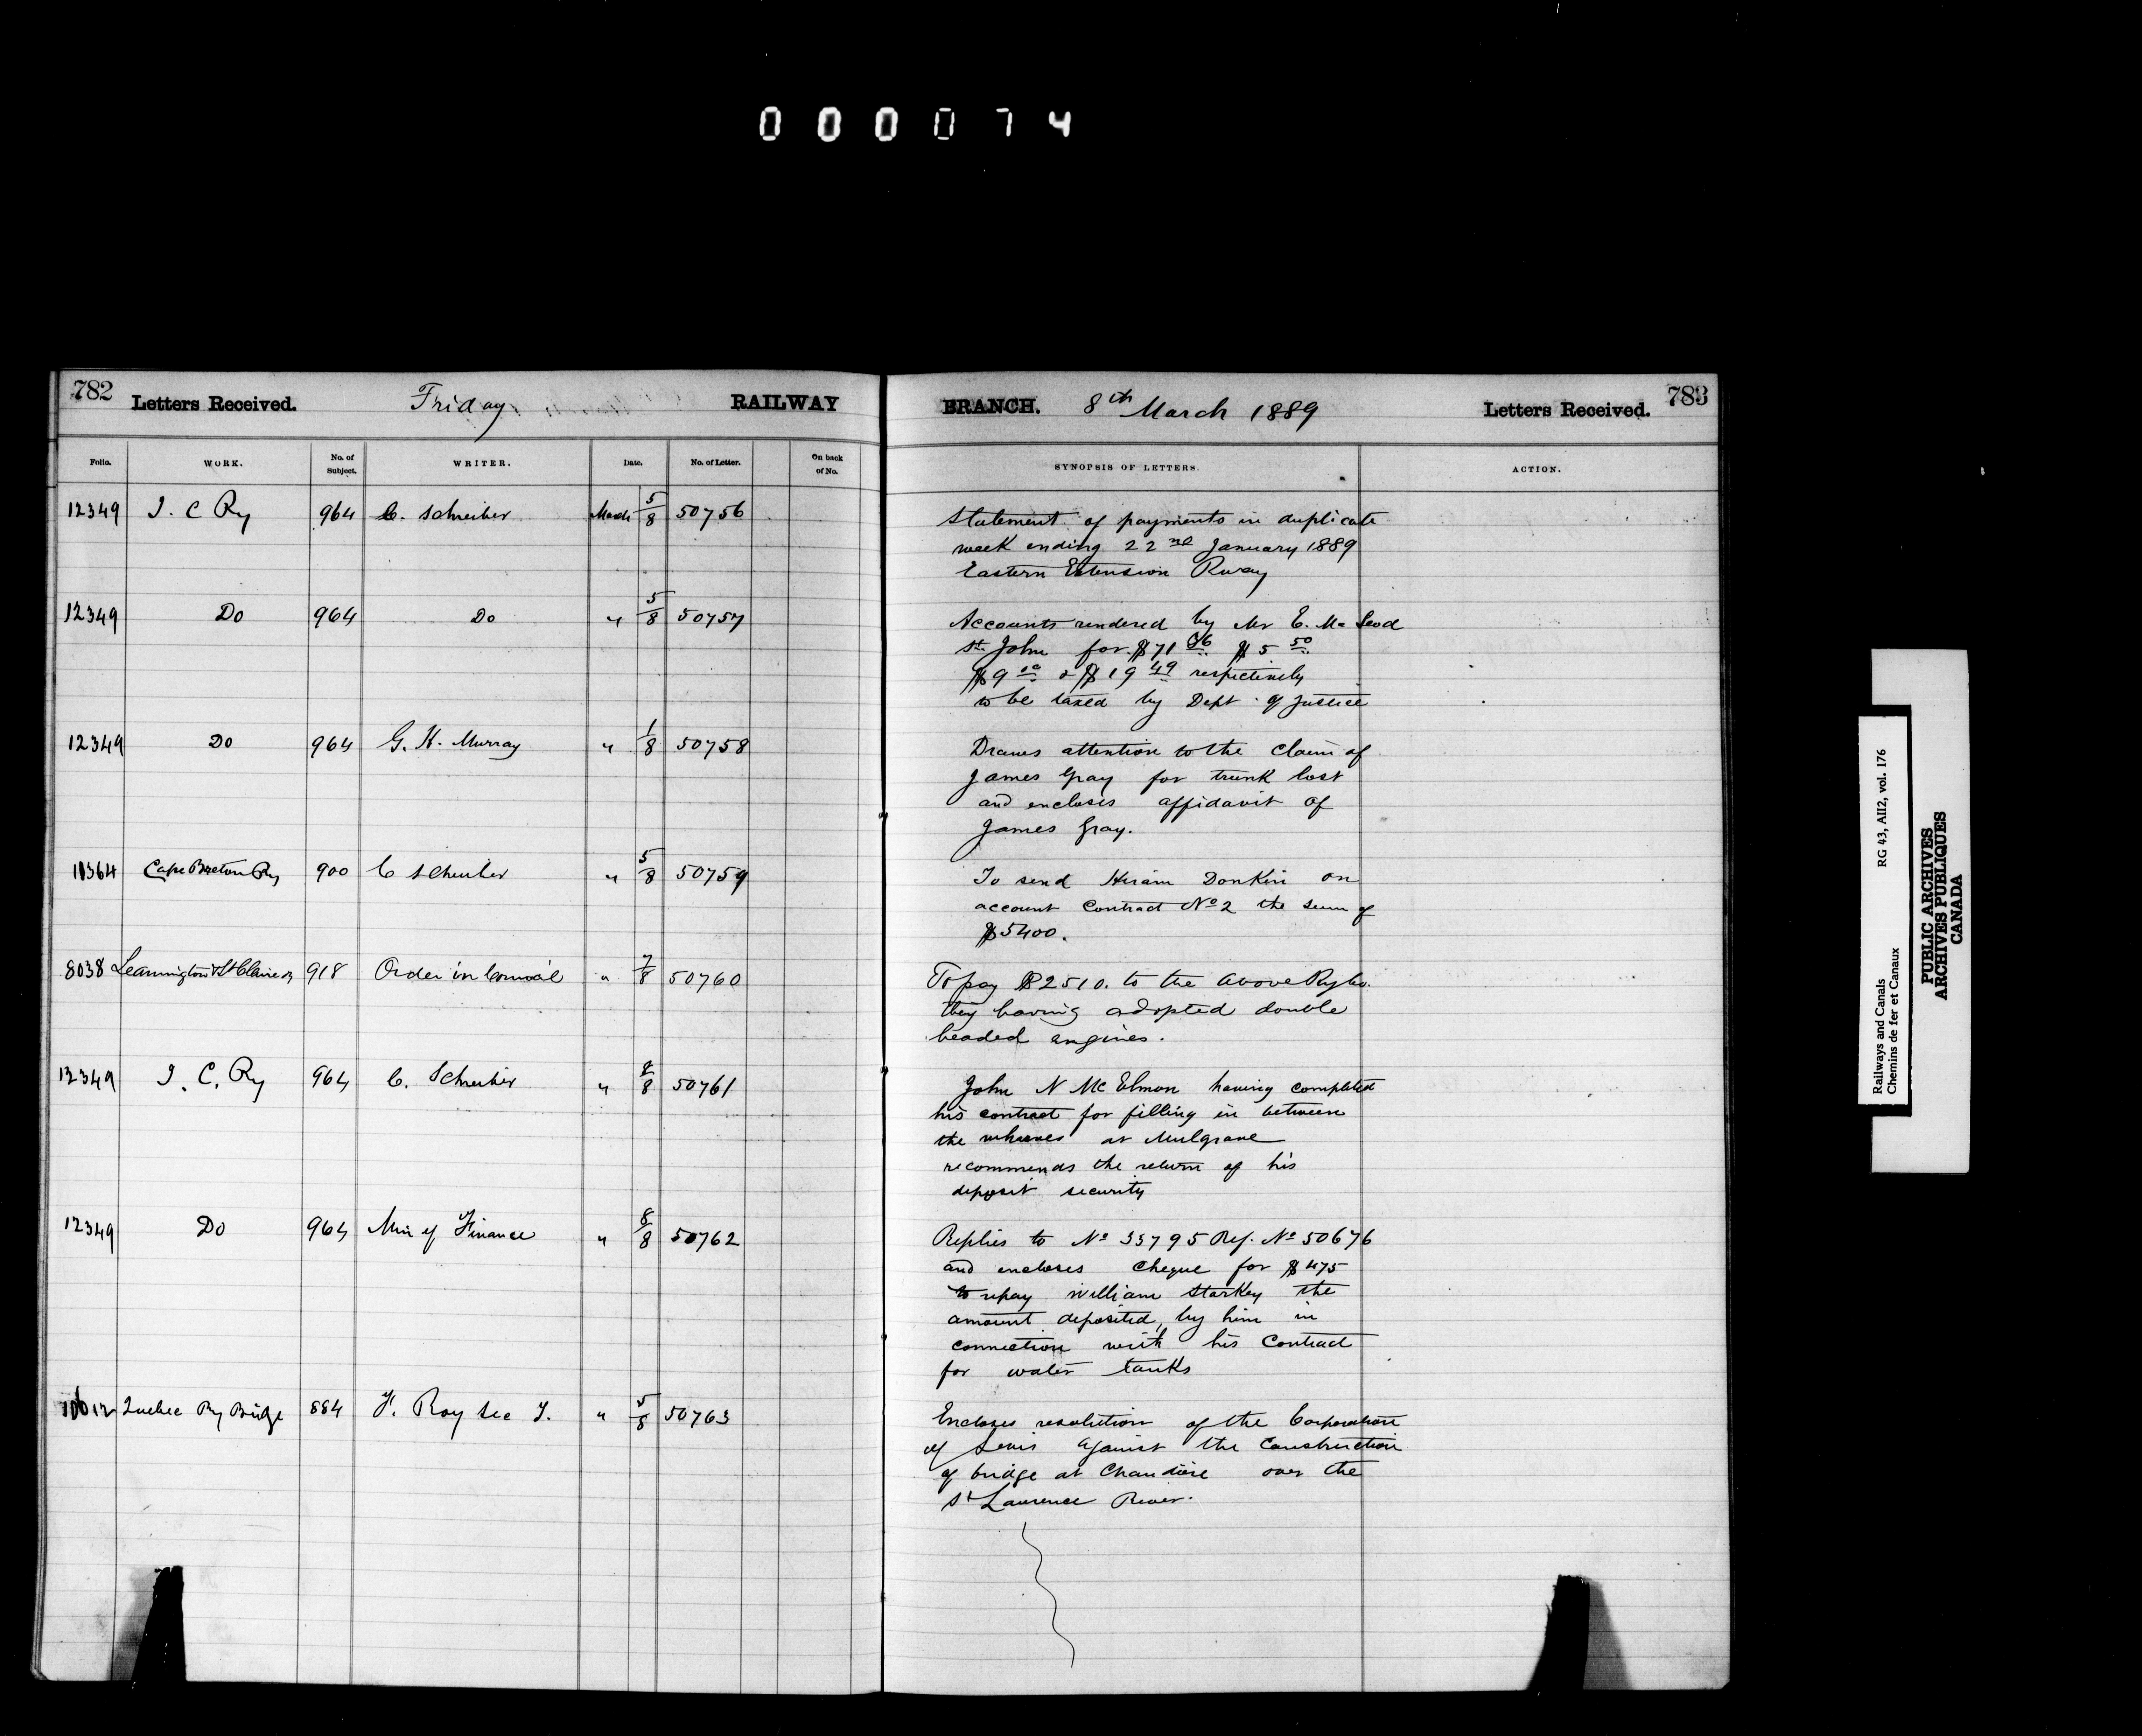 000074
782 Letters Received. Friday RAILWAY
BRANCH. 8th March 1889 Letters Received. 783
Folio. WORK. No. of Subject. WRITER. Date. No. of Letter. On back of No.
SYNOPSIS OF LETTERS. ACTION.
12349 I. C Ry 964 C. Schreiber March 5/8 50756
Statement of payments in duplicate
week ending 22nd January 1889
Eastern Extension Rway
12349 Do 964 Do " 5/8 50757
Accounts rendered by Mr E. McLeod
St. John for $71 $5 50
$9 00 & $19 49 respectively
to be taxed by Dept of Justice
12349 Do 964 G. H. Murray " 1/8 50758
Draws attention to the claim of
James Gray for trunk lost
and encloses affidavit of
James Gray.
11364 Cape Breton Ry 900 C Schreiber " 5/8 50759
To send Hiram Donkin on
account Contract No 2 the sum of
$5400.
8038 Leamington & St Claire Ry 918 Order in Council " 7/8 50760
To pay $2510. to the above Ry Co.
they having adopted double
headed engines.
12349 I. C. Ry 964 C. Schreiber " 8/8 50761
John N McElmon having completed
his contract for filling in between
the wharves at Mulgrave
recommends the return of his
deposit security
12349 Do 964 Min of Finance " 8/8 50762
Replies to No 33795 Ref. No 50676
and encloses Cheque for $475
to repay William Starkey the
amount deposited, by him in
connection with his Contract
for water tanks
Quebec Ry Bridge 884 F. Roy Sec T. " 5/8 50763
Encloses resolution of the Corporation
of Levis against the Construction
of bridge at Chaudiere over the
St Laurence River.
Railways and Canals RG 43, AII2, vol. 176
Chemins de fer et Canaux
PUBLIC ARCHIVES
ARCHIVES PUBLIQUES
CANADA